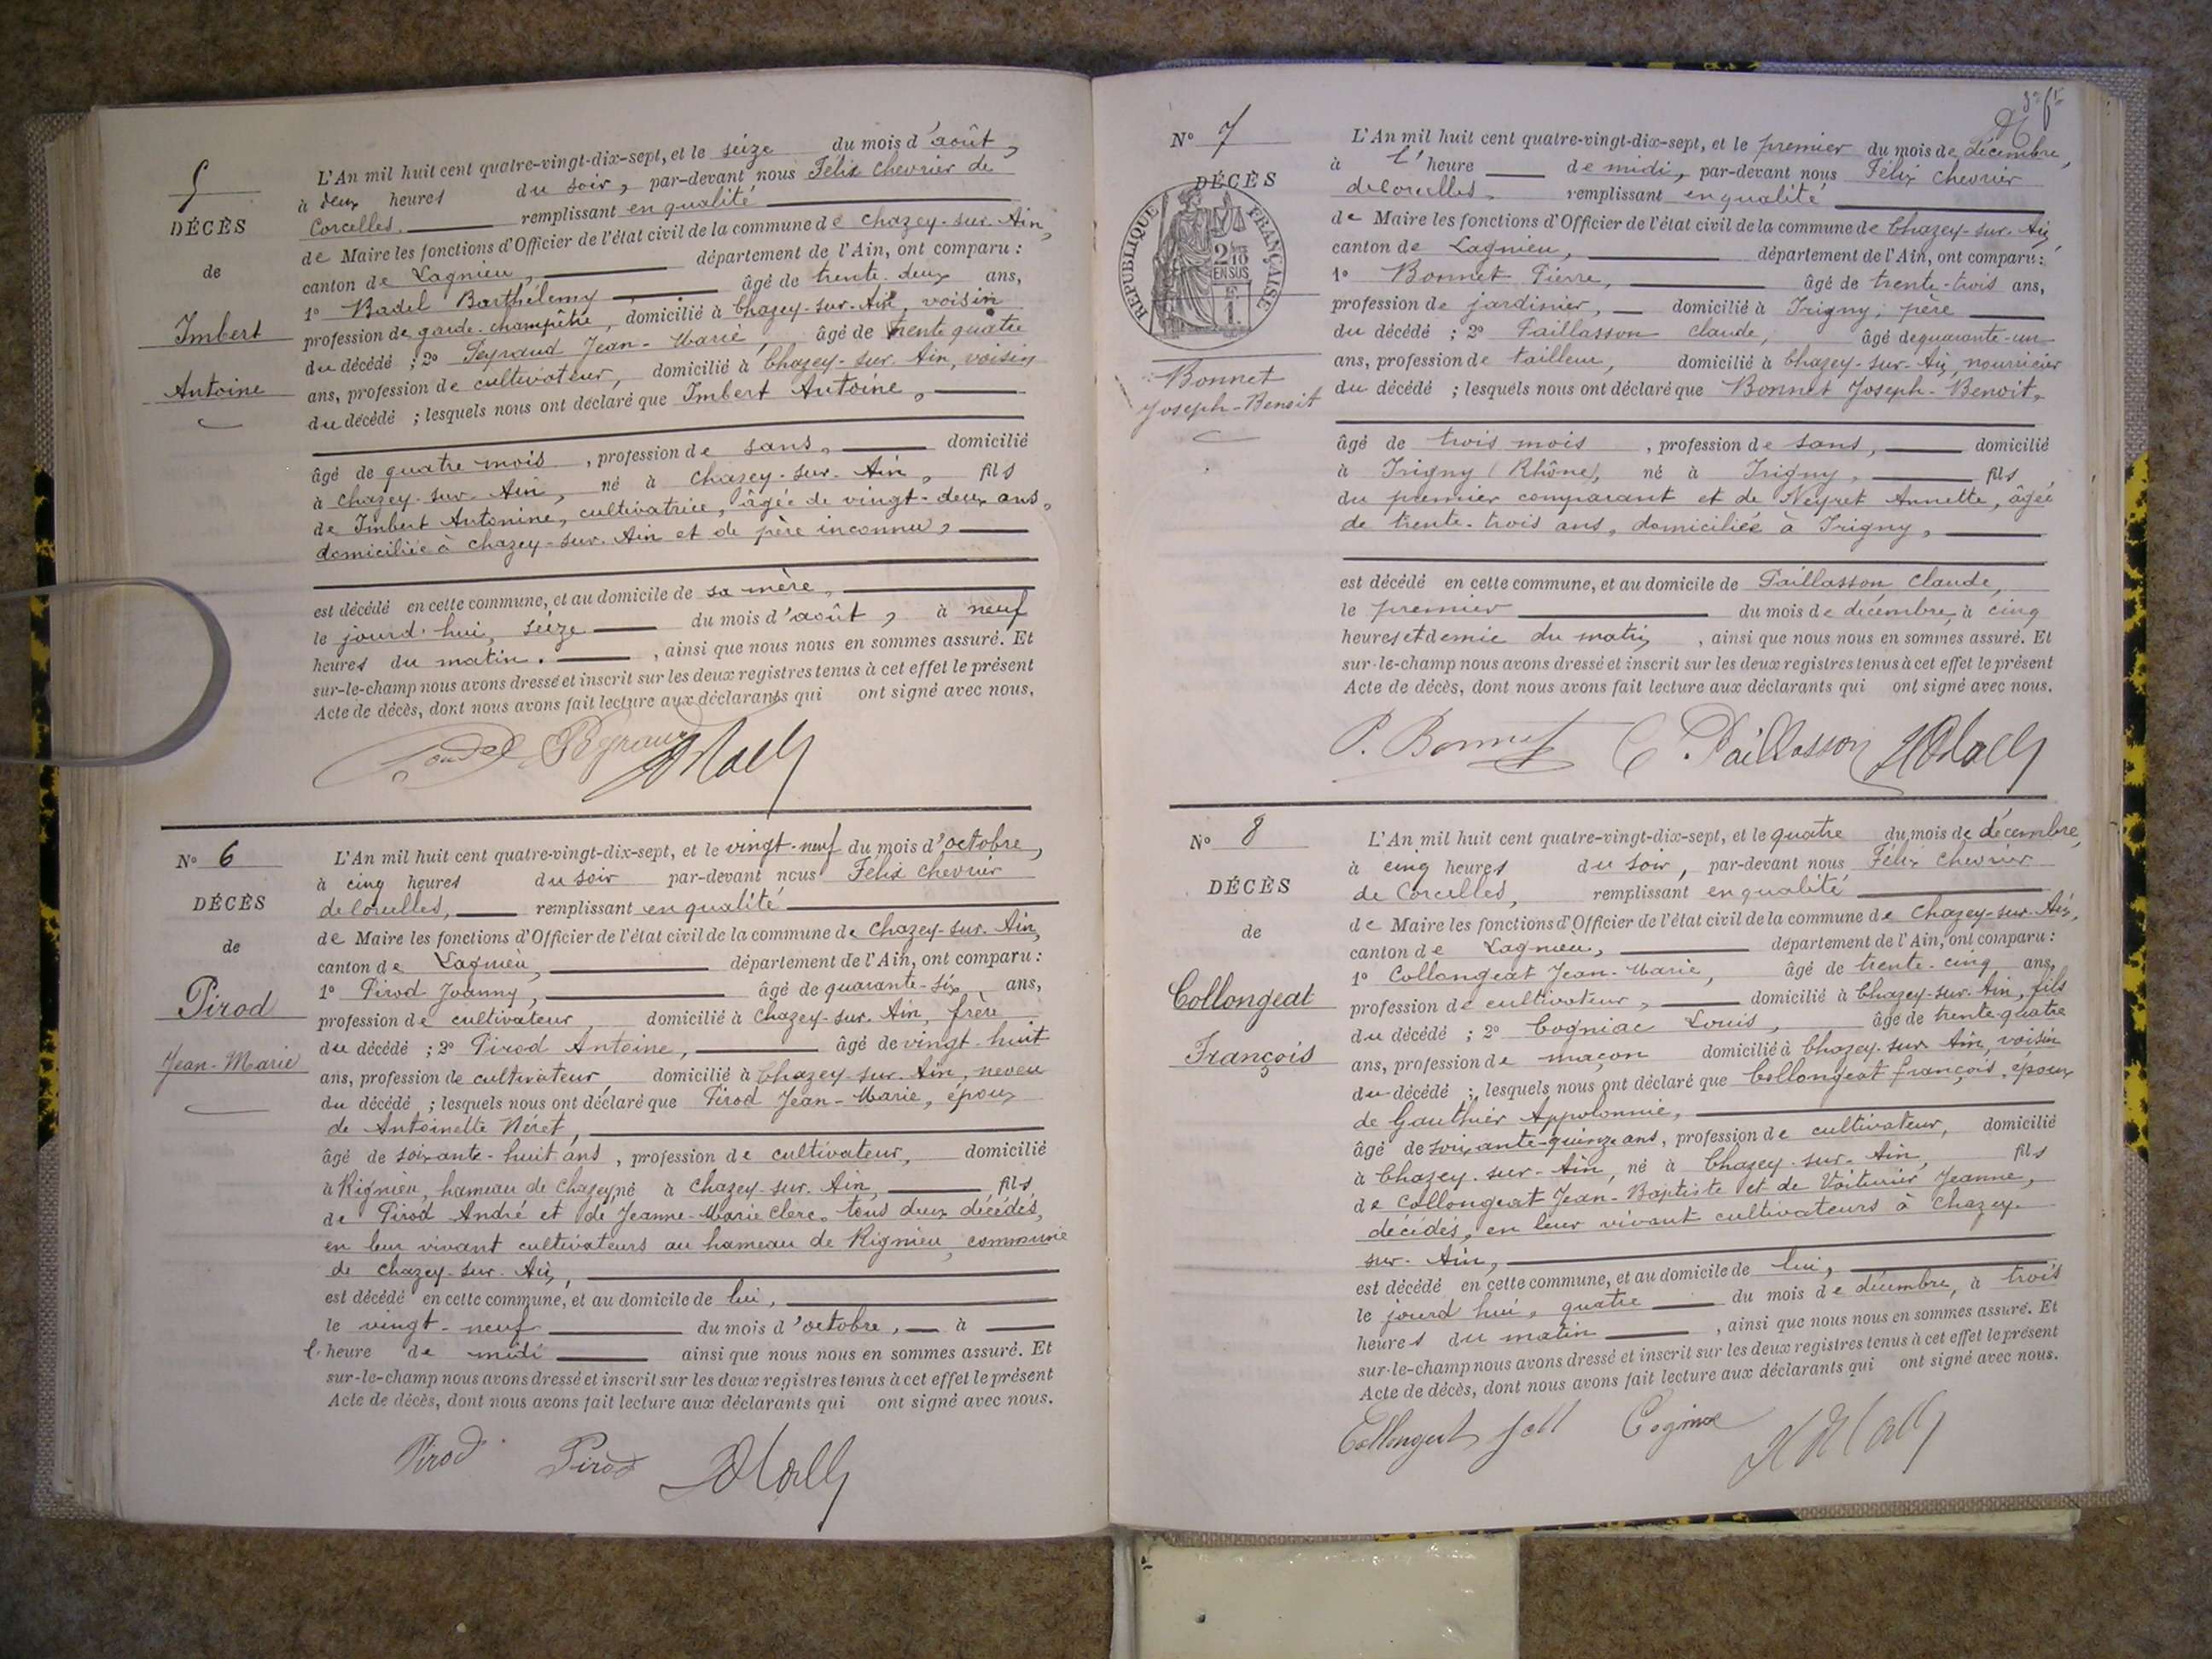 5
DÉCÈS
de
Imbert
Antoine
L'An mil huit cent quatre-vingt-dix-sept, et le seize du mois d'août,
à deux heures du soir, par-devant nous Félix Chevrier de
Corcelles, remplissant en qualité
de Maire les fonctions d'Officier de l'état civil de la commune de Chazey-sur-Ain,
canton de Lagnieu, département de l'Ain, ont comparu :
1º Badel Barthélemy âgé de trente-deux ans,
profession de garde-champêtre, domicilié à Chazey-sur-Ain, voisin
du décédé ; 2º Peyraud Jean-Marie, âgé de trente quatre
ans, profession de cultivateur, domicilié à Chazey-sur-Ain, voisin
du décédé ; lesquels nous ont déclaré que Imbert Antoine,
âgé de quatre mois, profession de sans, domicilié
à Chazey-sur-Ain, né à Chazey-sur-Ain, fils
de Imbert Antonine, cultivatrice, âgée de vingt-deux ans,
domiciliée à Chazey-sur-Ain et de père inconnu,
est décédé en cette commune, et au domicile de sa mère,
le jourd'hui, seize du mois d'août, à neuf
heures du matin. , ainsi que nous nous en sommes assuré. Et
sur-le-champ nous avons dressé et inscrit sur les deux registres tenus à cet effet le présent
Acte de décès, dont nous avons fait lecture aux déclarants qui ont signé avec nous.
Peyraud
Nº 6
DÉCÈS
de
Pirod
Jean-Marie
L'An mil huit cent quatre-vingt-dix-sept, et le vingt-neuf du mois d'octobre,
à cinq heures du soir par-devant nous Félix Chevrier
de Corcelles, remplissant en qualité
de Maire les fonctions d'Officier de l'état civil de la commune de Chazey-sur-Ain,
canton de Lagnieu, département de l'Ain, ont comparu :
1º Pirod Joanny, âgé de quarante-six ans,
profession de cultivateur, domicilié à Chazey-sur-Ain, frère
du décédé ; 2º Pirod Antoine, âgé de vingt-huit
ans, profession de cultivateur, domicilié à Chazey-sur-Ain, neveu
du décédé ; lesquels nous ont déclaré que Pirod Jean-Marie, époux
de Antoinette Néret,
âgé de soixante-huit ans, profession de cultivateur, domicilié
à Rignieu, hameau de Chazey, né à Chazey-sur-Ain, fils
de Pirod André et de Jeanne-Marie Clerc, tous deux décédés,
en leur vivant cultivateurs au hameau de Rignieu, commune
de Chazey-sur-Ain,
est décédé en cette commune, et au domicile de lui,
le vingt-neuf du mois d'octobre, à
l'heure de midi ainsi que nous nous en sommes assuré. Et
sur-le-champ nous avons dressé et inscrit sur les deux registres tenus à cet effet le présent
Acte de décès, dont nous avons fait lecture aux déclarants qui ont signé avec nous.
Pirod Pirod
Nº 7
DÉCÈS
RÉPUBLIQUE FRANÇAISE
2/10 EN SUS
Bonnet
Joseph-Benoit
L'An mil huit cent quatre-vingt-dix-sept, et le premier du mois de décembre,
à l'heure de midi, par-devant nous Félix Chevrier
de Corcelles, remplissant en qualité
de Maire les fonctions d'Officier de l'état civil de la commune de Chazey-sur-Ain,
canton de Lagnieu, département de l'Ain, ont comparu :
1º Bonnet Pierre, âgé de trente-trois ans,
profession de jardinier, domicilié à Irigny, père
du décédé ; 2º Paillasson Claude, âgé de quarante-un
ans, profession de tailleur, domicilié à Chazey-sur-Ain, nourricier
du décédé ; lesquels nous ont déclaré que Bonnet Joseph-Benoit,
âgé de trois mois, profession de sans, domicilié
à Irigny (Rhône), né à Irigny, fils
du premier comparant et de Neyret Annette, âgée
de trente-trois ans, domiciliée à Irigny,
est décédé en cette commune, et au domicile de Paillasson Claude,
le premier du mois de décembre, à cinq
heures et demie du matin, ainsi que nous nous en sommes assuré. Et
sur-le-champ nous avons dressé et inscrit sur les deux registres tenus à cet effet le présent
Acte de décès, dont nous avons fait lecture aux déclarants qui ont signé avec nous.
P. Bonnet C. Paillasson
Nº 8
DÉCÈS
de
Collongeat
François
L'An mil huit cent quatre-vingt-dix-sept, et le quatre du mois de décembre,
à cinq heures du soir, par-devant nous Félix Chevrier
de Corcelles, remplissant en qualité
de Maire les fonctions d'Officier de l'état civil de la commune de Chazey-sur-Ain,
canton de Lagnieu, département de l'Ain, ont comparu :
1º Collongeat Jean-Marie, âgé de trente-cinq ans,
profession de cultivateur, domicilié à Chazey-sur-Ain, fils
du décédé ; 2º Cogniac Louis, âgé de trente-quatre
ans, profession de maçon domicilié à Chazey-sur-Ain, voisin
du décédé ; lesquels nous ont déclaré que Collongeat François, époux
de Gauthier Appolonnie,
âgé de soixante-quinze ans, profession de cultivateur, domicilié
à Chazey-sur-Ain, né à Chazey-sur-Ain, fils
de Collongeat Jean-Baptiste et de Voiturier Jeanne,
décédés, en leur vivant cultivateurs à Chazey-
sur-Ain,
est décédé en cette commune, et au domicile de lui,
le jourd'hui, quatre du mois de décembre, à trois
heures du matin, ainsi que nous nous en sommes assuré. Et
sur-le-champ nous avons dressé et inscrit sur les deux registres tenus à cet effet le présent
Acte de décès, dont nous avons fait lecture aux déclarants qui ont signé avec nous.
Collongeat Cogniac